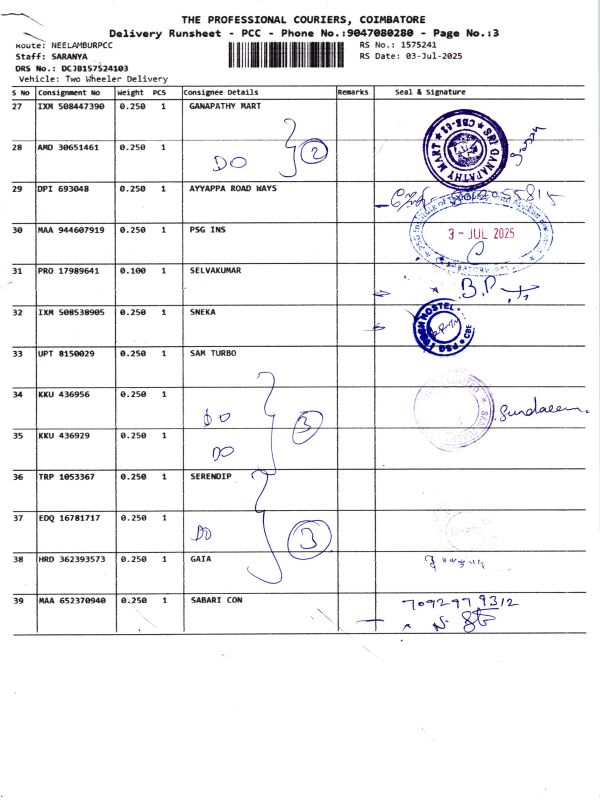 THE PROFESSIONAL COURIERS, COIMBATORE
Delivery Runsheet - PCC - Phone No.:9047080280 - Page No.:3
Route: NEELAMBURPCC
RS No.: 1575241
Staff: SARANYA
RS Date: 03-Jul-2025
DRS No.: DCJB157524103
Vehicle: Two Wheeler Delivery
S No Consignment No Weight PCS Consignee Details Remarks Seal & Signature
27 IXM 508447390 0.250 1 GANAPATHY MART
28 AMD 30651461 0.250 1 DO 2
SRI GANAPATHY MART CBE-62
29 DPI 693048 0.250 1 AYYAPPA ROAD WAYS
30 MAA 944607919 0.250 1 PSG INS
3 - JUL 2025
31 PRO 17989641 0.100 1 SELVAKUMAR
B.P
32 IXM 508538905 0.250 1 SNEKA
HOSTEL CBE PSG
33 UPT 8150029 0.250 1 SAM TURBO
34 KKU 436956 0.250 1 DO 3
Sundaram
35 KKU 436929 0.250 1 DO
36 TRP 1053367 0.250 1 SERENDIP
37 EDQ 16781717 0.250 1 DO 3
38 HRD 362393573 0.250 1 GAIA
39 MAA 652370940 0.250 1 SABARI CON 7092979312